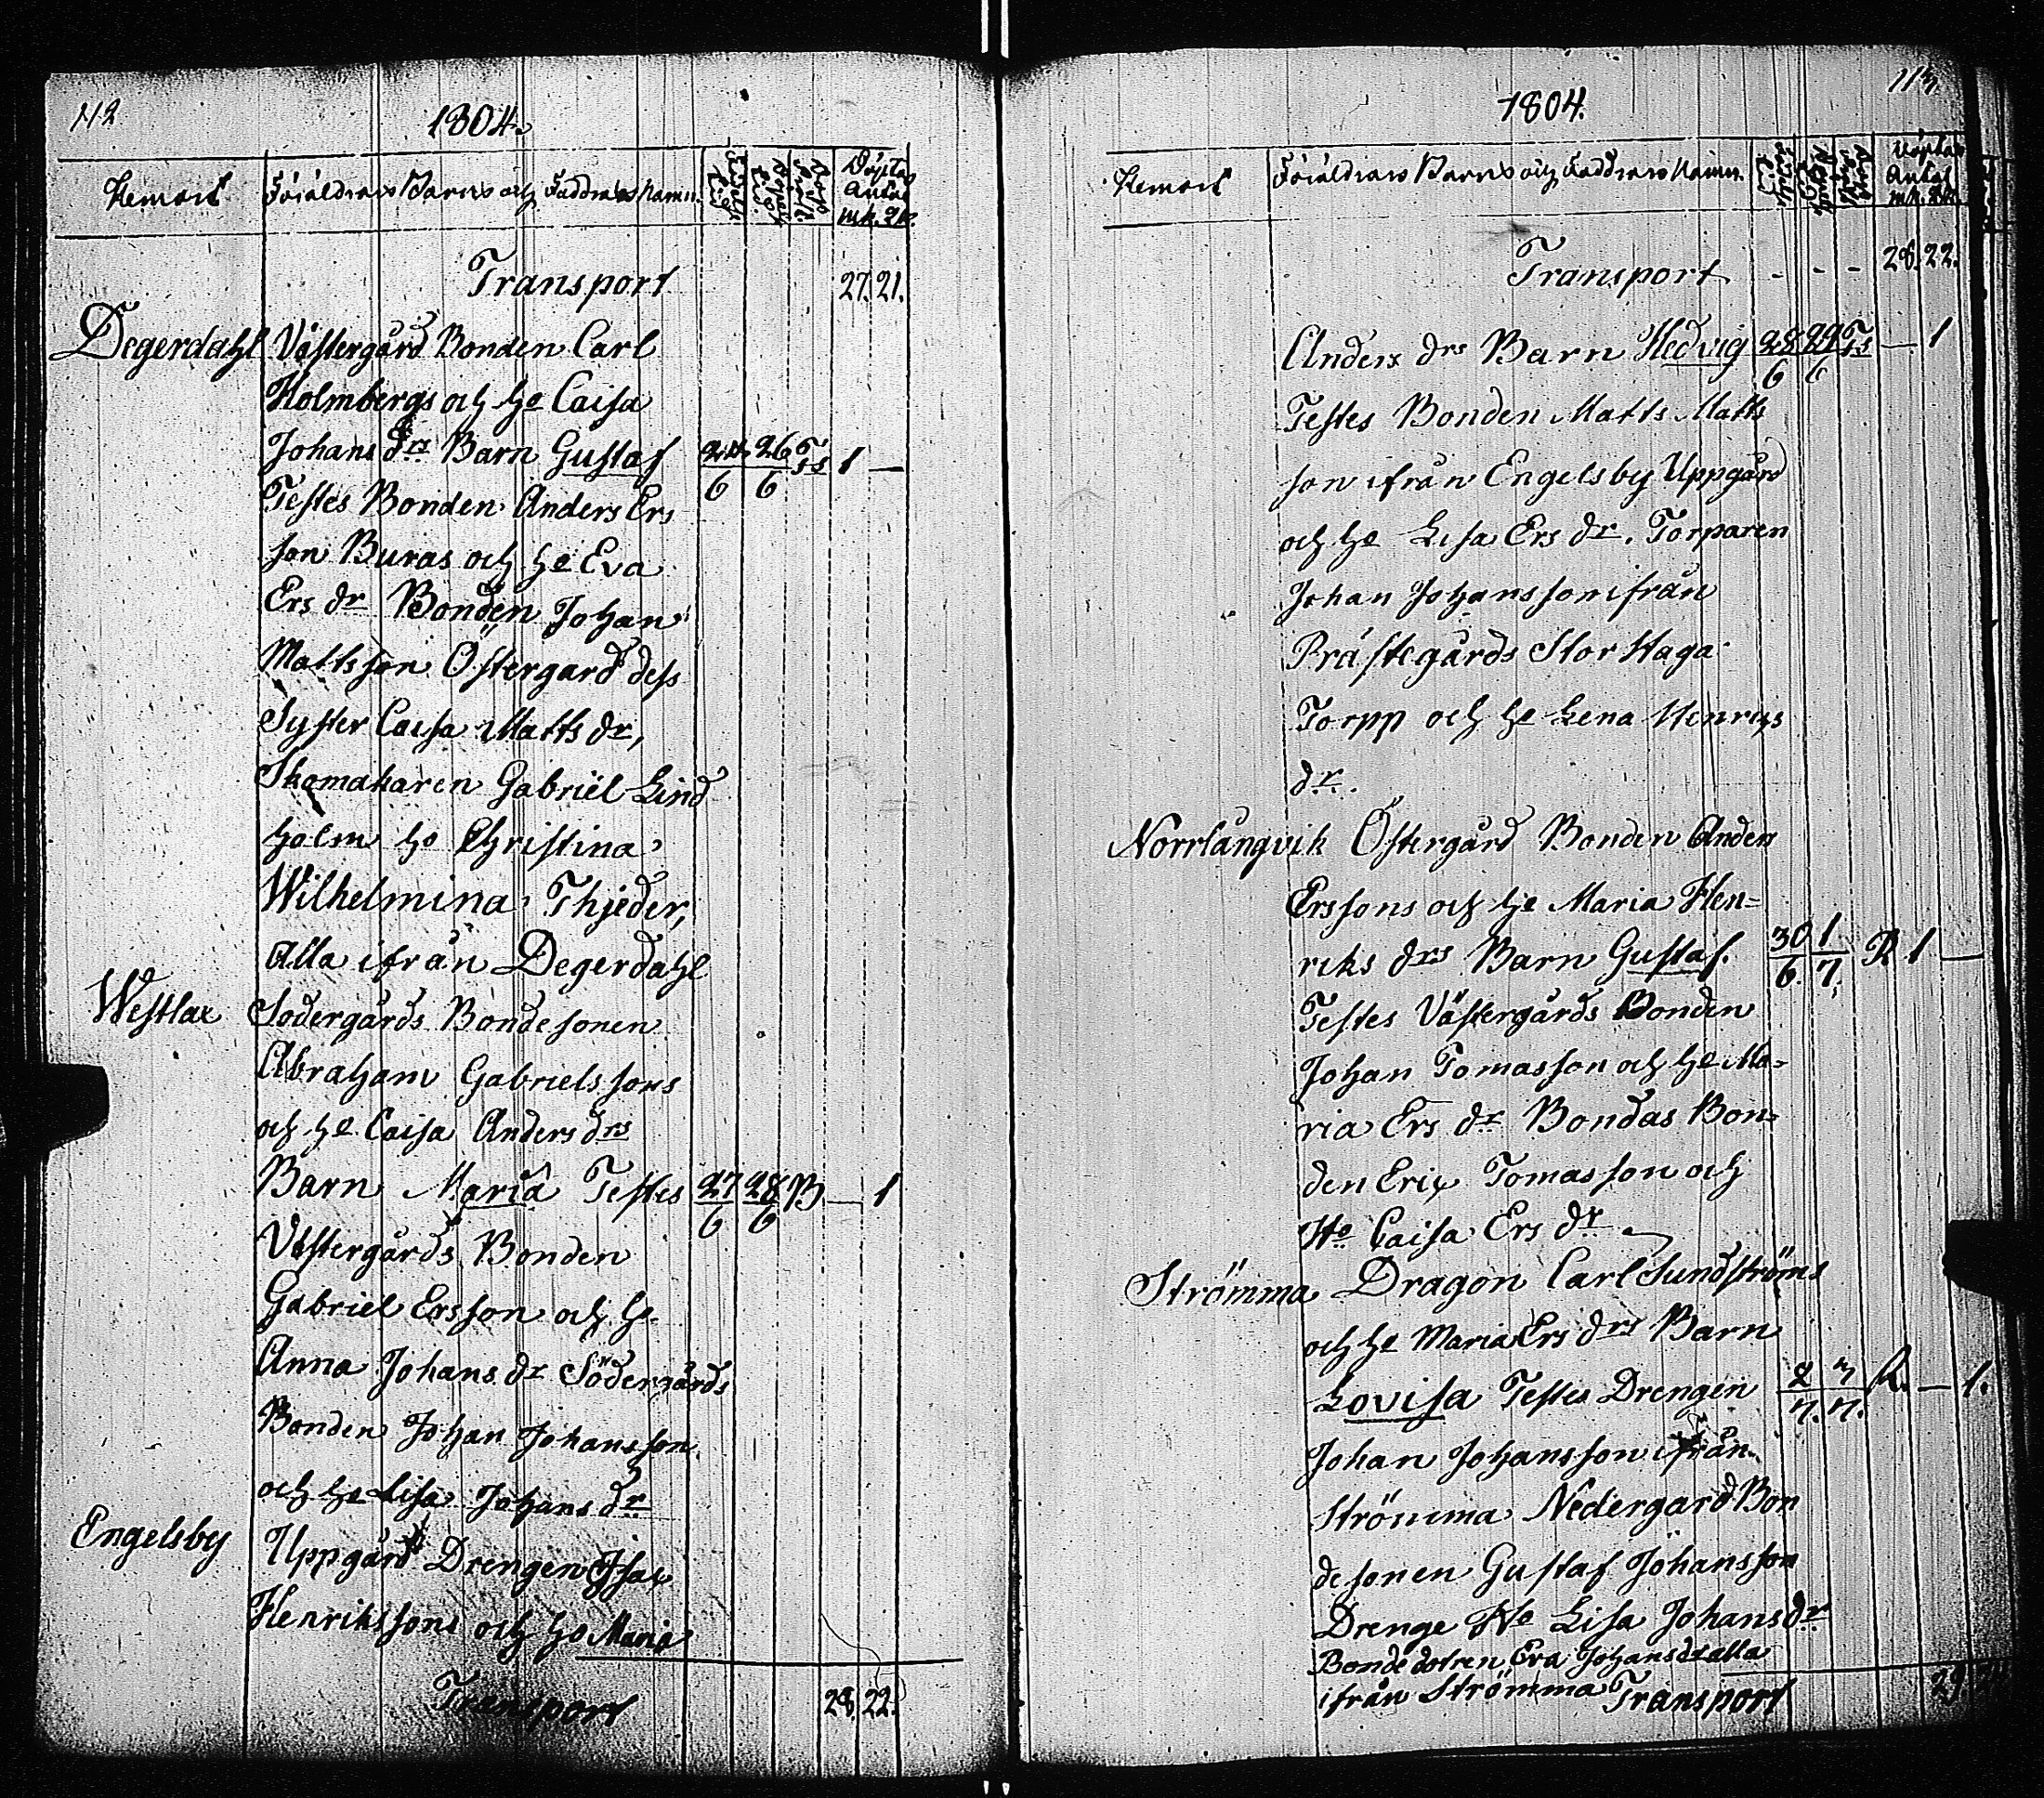 112
1804.
Hemort Föräldrars Barns och Faddrars Namn. Födelse Dag Döpelse Dag Döptas Antal mk. qk.
Transport 27. 21.
Degerdahl Västergård Bonden Carl
Holmbergs och Ho Caisa
Johans drs Barn Gustaf 24/6 26/6 1 —
Testes Bonden Anders Ers
son Buras och Ho Eva
Ers dr Bonden Johan
Mattsson Östergard dess
Syster Caisa Matts dr,
Skomakaren Gabriël Lind
holm Ho Christina
Wilhelmina Thjeder,
Alla ifrån Degerdahl
Westlax Södergårds Bondesonen
Abraham Gabrielssons
och Ho Caisa Anders drs
Barn Maria Testes 27/6 28/6 B — 1
Västergårds Bonden
Gabriel Ersson och H.
Anna Johans dr Södergårds
Bonden Johan Johansson
och Ho Lisa Johans dr
Engelsby Uppgård Drengen Isac
Henrikssons och Ho Maria
Transport 28. 22.
113
1804.
Hemort Föräldrars Barns och Faddrars Namn. Döptas Antal mk. qk.
Transport - - - 28. 22.
Anders drs Barn Hedvig 28/6 29/6 — 1
Testes Bonden Matts Matts
son ifrån Engelsby Uppgård
och Ho Lisa Ers dr. Torparen
Johan Johansson ifrån
Prästegårds Stor Haga
Torpp och Ho Lena Henrics
dr.
Norrlångvik Östergård Bonden Anders
Erssons och Ho Maria Hen=
riks drs Barn Gustaf. 30/6. 1/7. R 1 —
Testes Västergårds Bonden
Johan Tomasson och Ho Ma=
ria Ers dr Bondas Bon=
den Eric Tomasson och
Ho Caisa Ers dr
Strömma Dragon Carl Sundströms
och Ho Maria Ers drs Barn
Lovisa Testes Drengen 2/7. 3/7. R. — 1.
Johan Johansson ifrån
Strömma Nedergard Bon
desonen Gustaf Johansson
Drenge Ho Lisa Johans dr
Bonde dotren Eva Johans dr alla
ifrån Strömma Transport 29